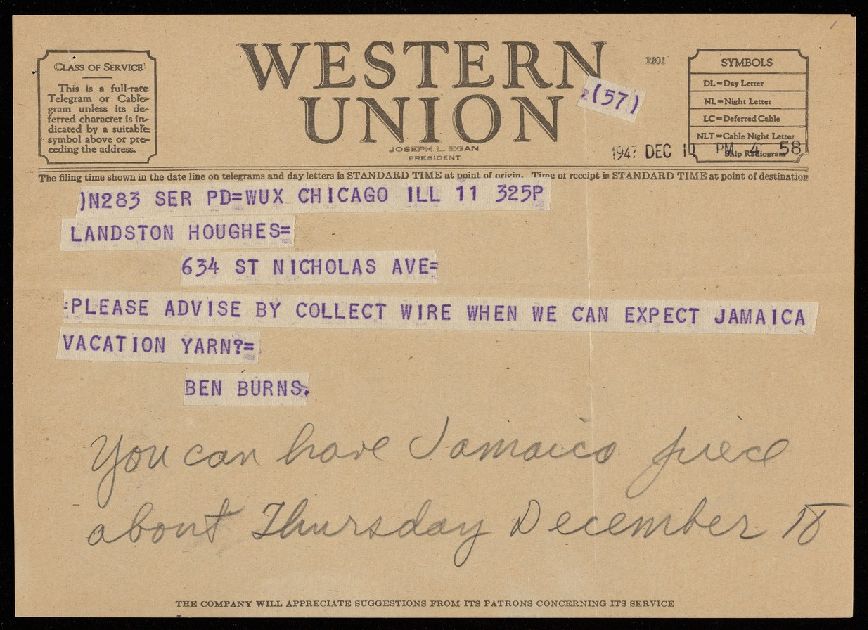 CLASS OF SERVICE
This is a full-rate
Telegram or Cable-
gram unless its de-
ferred character is in-
dicated by a suitable
symbol above or pre-
ceding the address.
WESTERN
UNION
1201
(57)
JOSEPH L. EGAN
PRESIDENT
SYMBOLS
DL=Day Letter
NL=Night Letter
LC=Deferred Cable
NLT=Cable Night Letter
Ship Radiogram
1947 DEC 11 PM 4 58
The filing time shown in the date line on telegrams and day letters is STANDARD TIME at point of origin. Time of receipt is STANDARD TIME at point of destination
)N283 SER PD=WUX CHICAGO ILL 11 325P
LANDSTON HOUGHES=
634 ST NICHOLAS AVE=
:PLEASE ADVISE BY COLLECT WIRE WHEN WE CAN EXPECT JAMAICA
VACATION YARN?=
BEN BURNS.
You can have Jamaica piece
about Thursday December 18
THE COMPANY WILL APPRECIATE SUGGESTIONS FROM ITS PATRONS CONCERNING ITS SERVICE